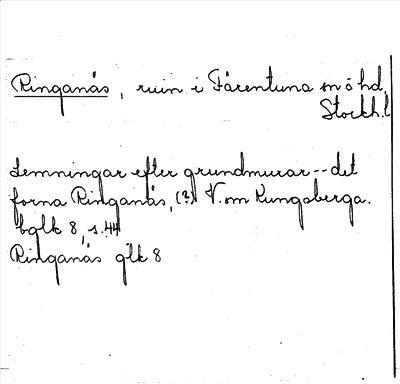 Ringanäs, ruin i Färentuna sn o hd
Stockh.l
Lemningar efter grundmurar -- det
forna Ringanäs, (?) V. om Kungsberga.
bglk 8, s. 44
Ringanäs glk 8